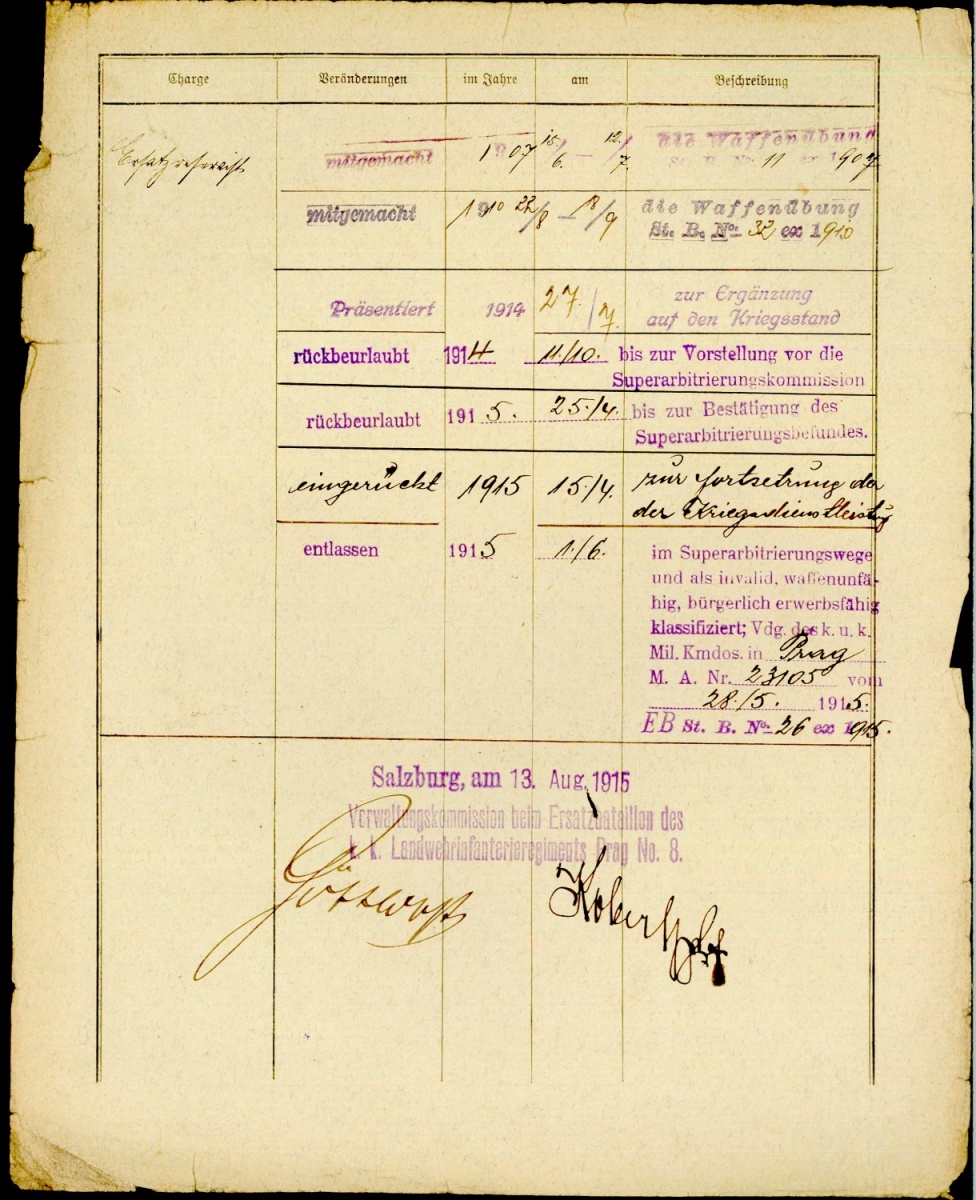 Charge Veränderungen im Jahre am Beschreibung
Ersatzreservist mitgemacht 1907 15/6. – 12/7. die Waffenübung
St. B. No. 11 ex 1907
mitgemacht 1910 22/8 – 18/9 die Waffenübung
St. B. No. 32 ex 1910
Präsentiert 1914 27/7. zur Ergänzung
auf den Kriegsstand
rückbeurlaubt 1914 11/10. bis zur Vorstellung vor die
Superarbitrierungskommission
rückbeurlaubt 1915. 25./4. bis zur Bestätigung des
Superarbitrierungsbefundes.
eingerückt 1915 15/4. zur fortsetzung der
der Kriegsdienstleistg
entlassen 1915 1./6. im Superarbitrierungswege
und als invalid, waffenunfä-
hig, bürgerlich erwerbsfähig
klassifiziert; Vdg. des k. u. k.
Mil. Kmdos. in Prag
M. A. Nr. 23105 vom
28./5. 1915.
EB St. B. No. 26 ex 1915.
Salzburg, am 13. Aug. 1915
Verwaltungskommission beim Ersatzbataillon des
k. k. Landwehrinfanterieregiments Prag No. 8.